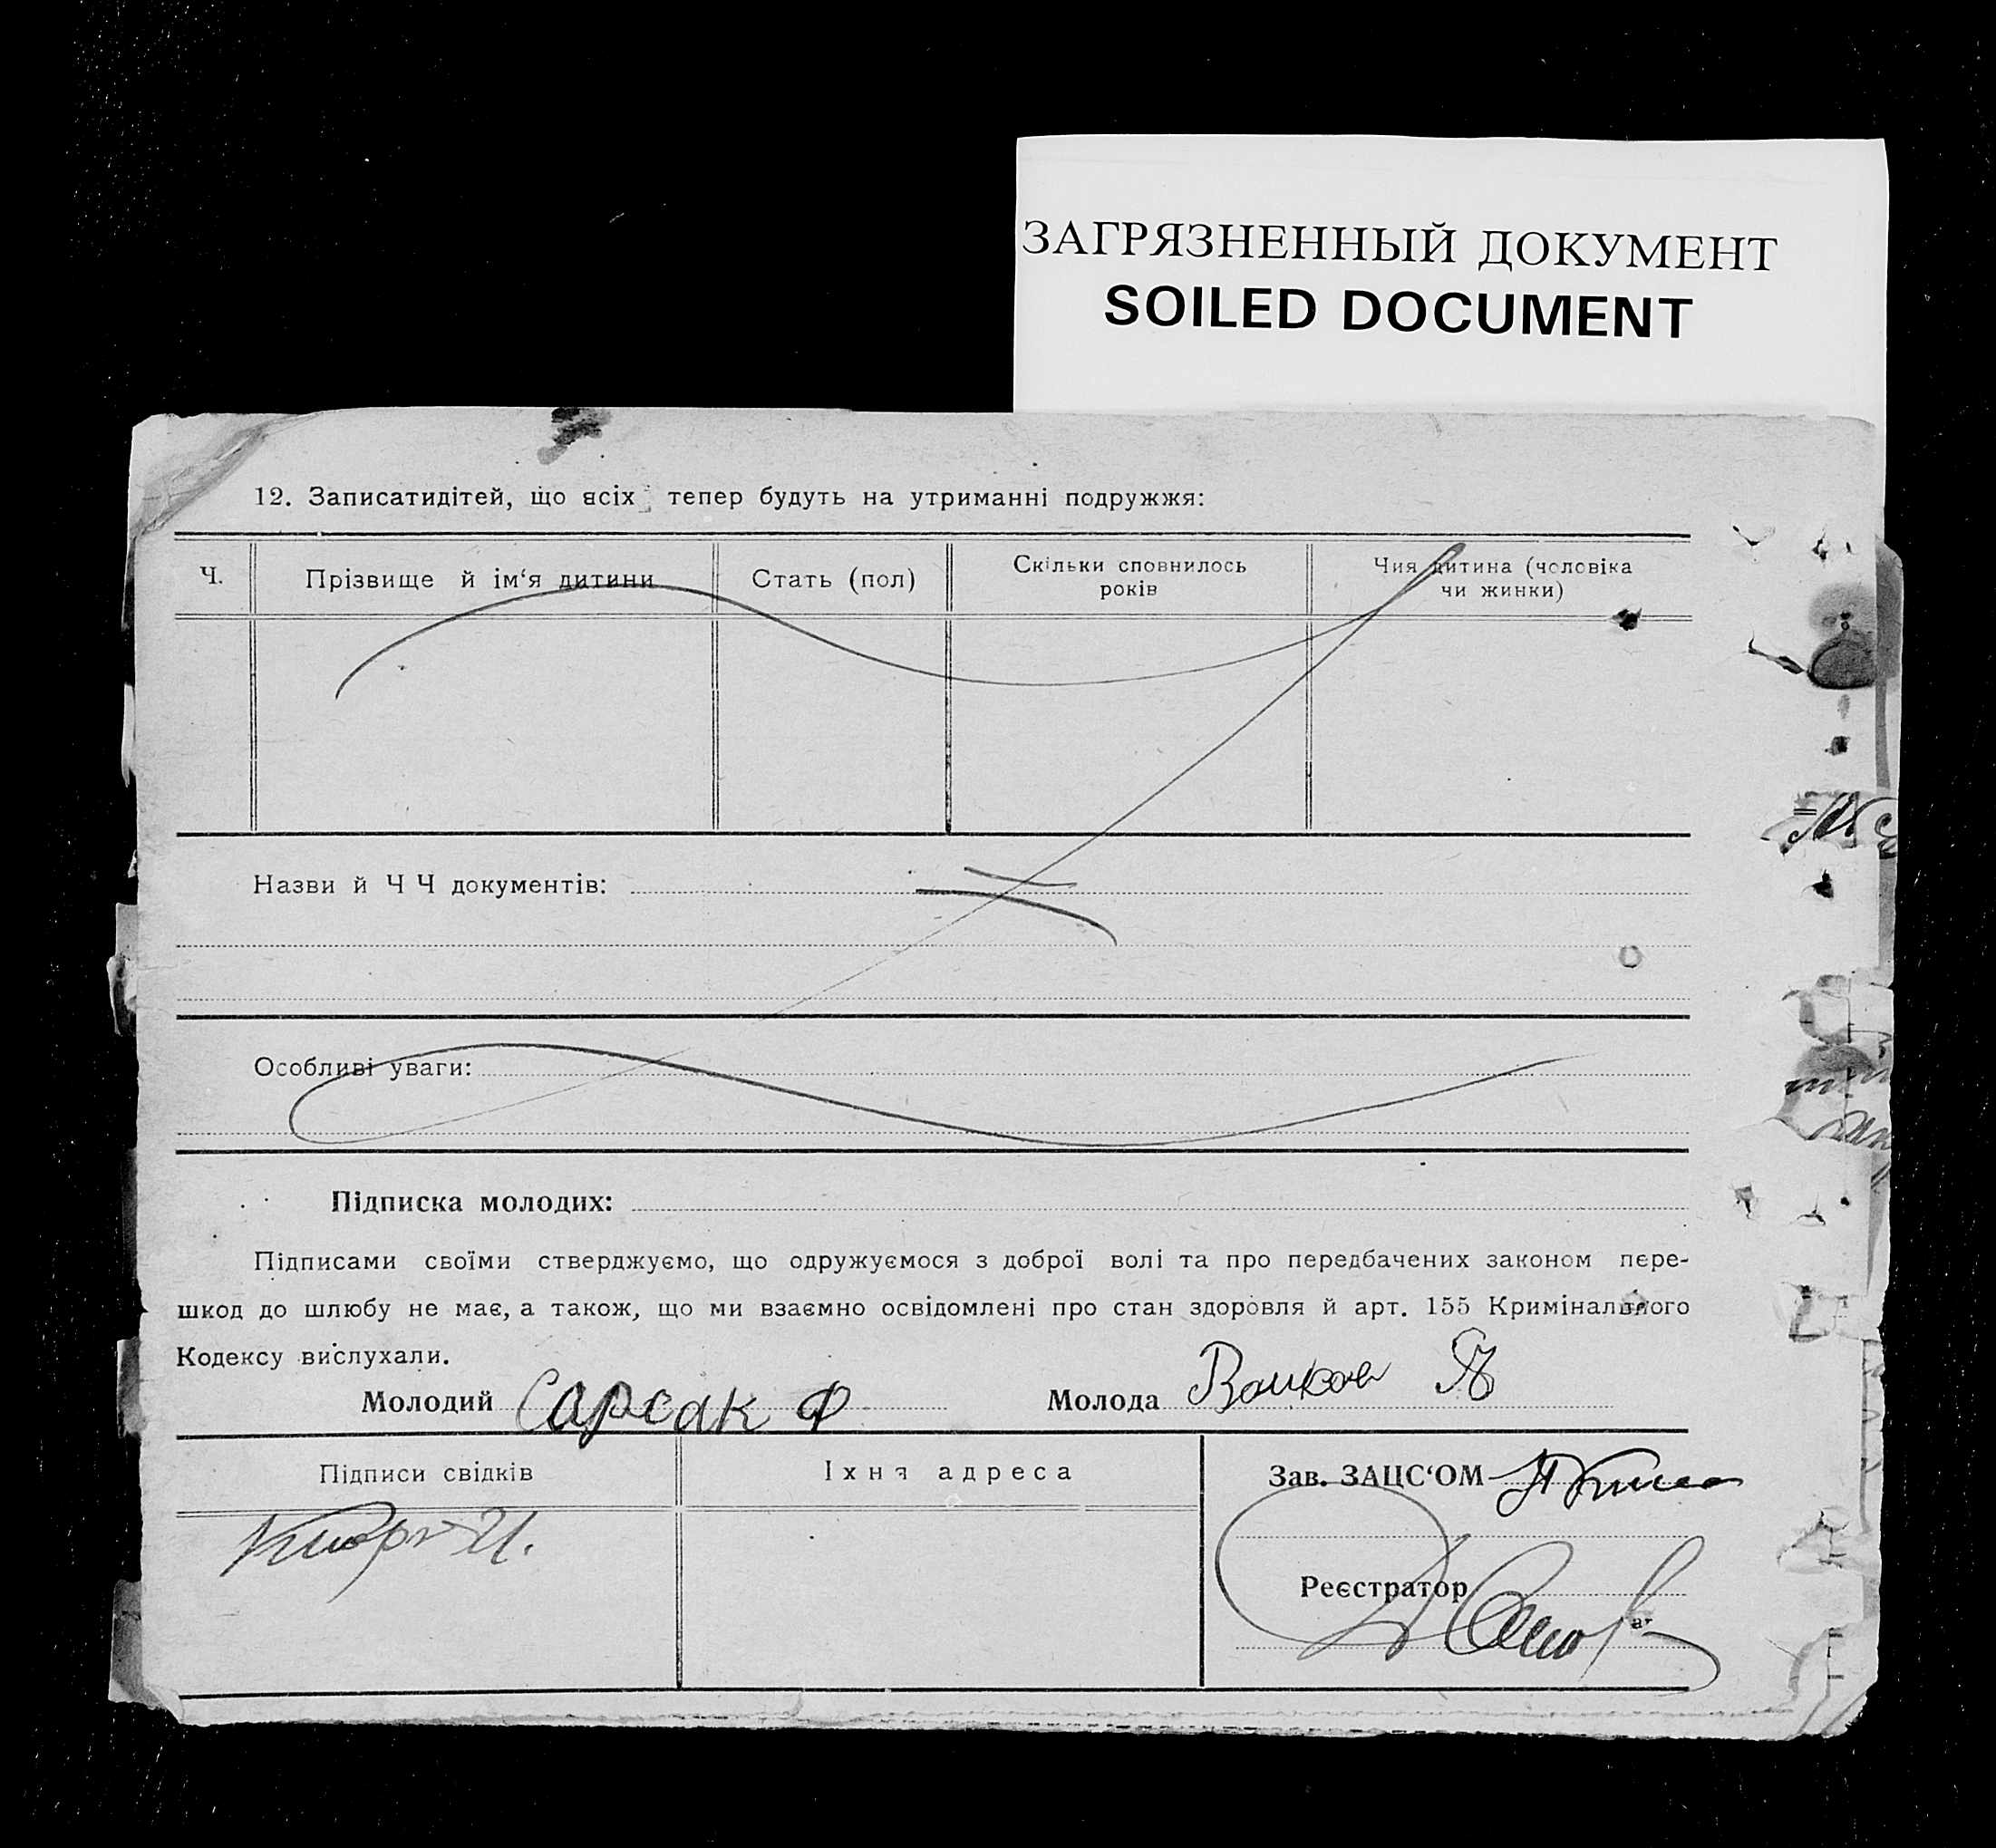 ЗАГРЯЗНЕННЫЙ ДОКУМЕНТ
SOILED DOCUMENT
12. Записатидітей, що всіх тепер будуть на утриманні подружжя:
Ч.
Прізвище й ім‘я дитини
Стать (пол)
Скільки сповнилось
років
Чия дитина (чоловіка
чи жинки)
Назви й Ч Ч документів:
Особливі уваги:
Підписка молодих:
Підписами своїми стверджуємо, що одружуємося з доброї волі та про передбачених законом пере-
шкод до шлюбу не має, а також, що ми взаємно освідомлені про стан здоровля й арт. 155 Кримінального
Кодексу вислухали.
Молодий Сарсак Ф
Молода
Підписи свідків
Їхня адреса
Зав. ЗАЦС‘ОМ
Реєстратор